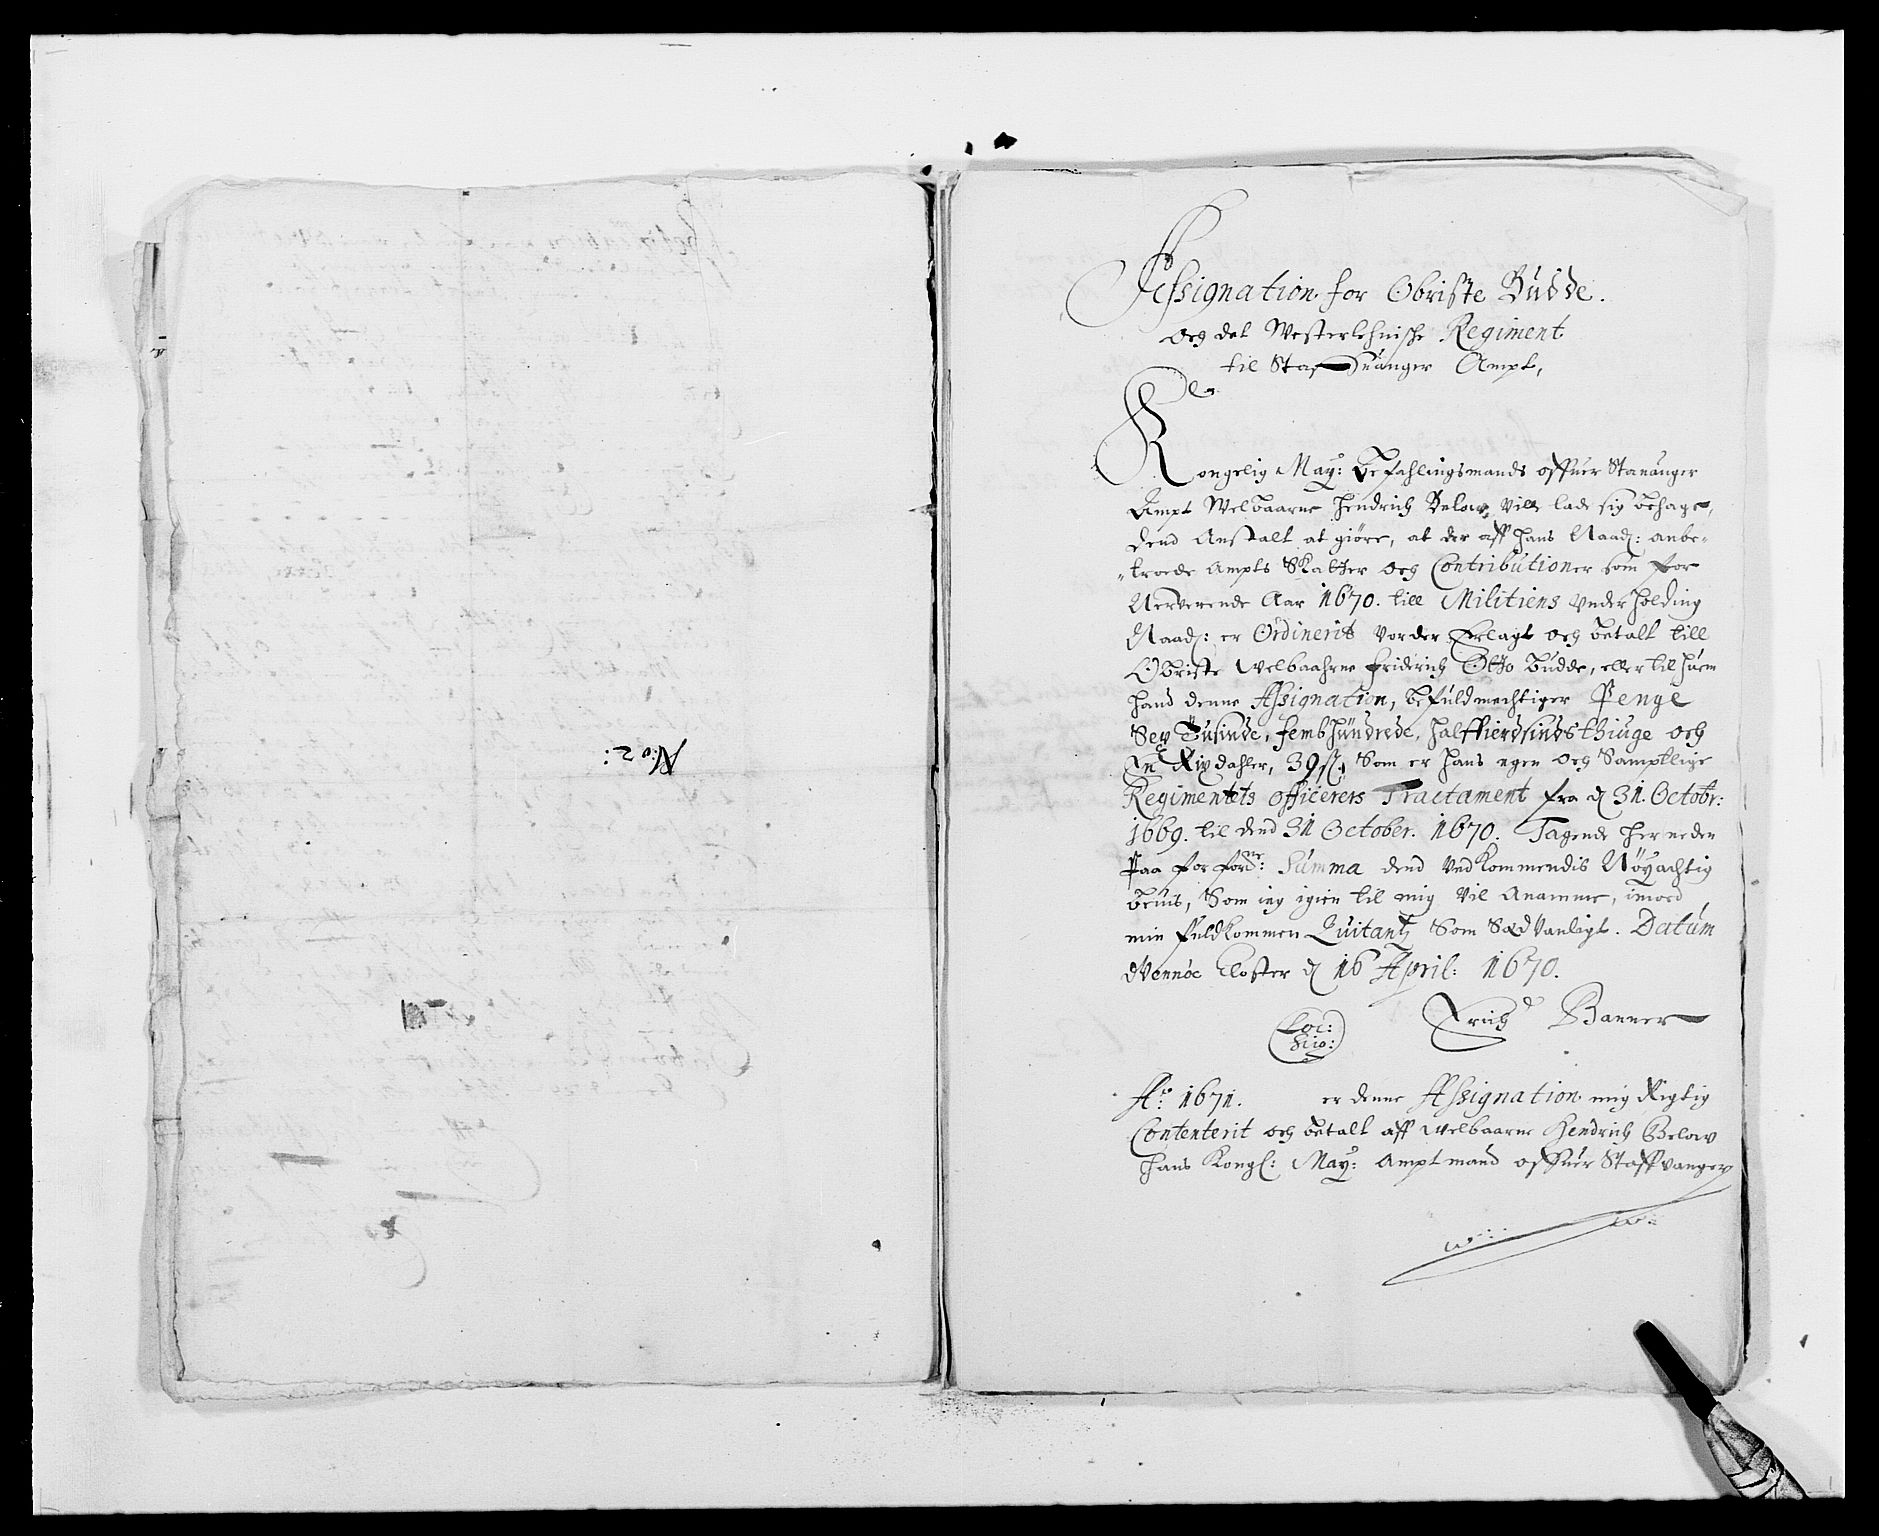 No 2:
Assignation for Obriste Budde.
och det Westerlehnische Regiment
til Staffuanger Ampt,
Kongelig May: Befahlingsmands offuer Stauanger
Ampt Welbaarne Hendrich Below, Ville lade sig behage,
dend Anstalt at giøre, at der aff hans Naad: anbe-
troede Ampts Skatter och Contributioner som for
Nerverende Aar 1670. till Militiens Underholding
Naad: er Ordinerit vorder Erlagt och betalt till
Obriste Welbaahrne Friderich Otto Budde, eller til huem
hand denne Assignation, befuldmechtiger Penge
Sex Tusinde, fembhundrede, halffierdsindsthiuge och
En Rixdahler, 39 s. Som er hans egen och Samptlige
Regimentets officerers Tractament fra d 31. Octobr:
1669. til dend 31 October. 1670. Tagende her neden
Paa for forne: Summa dend Vedkommendis Nøyachtig
beuis, Som ieg igien til mig Vil Anamme, imod
min fuldkommen Quitantz Som Sædvanligt. Datum
Closter d 16 April: 1670.
Loc: Sigi: Erich Banner
Ao: 1671. er denne Assignation mig Rigtig
Contenterit och betalt aff Welbaarne Hendrich Below
hans Kongl: May: Amptmand offuer Staffvanger